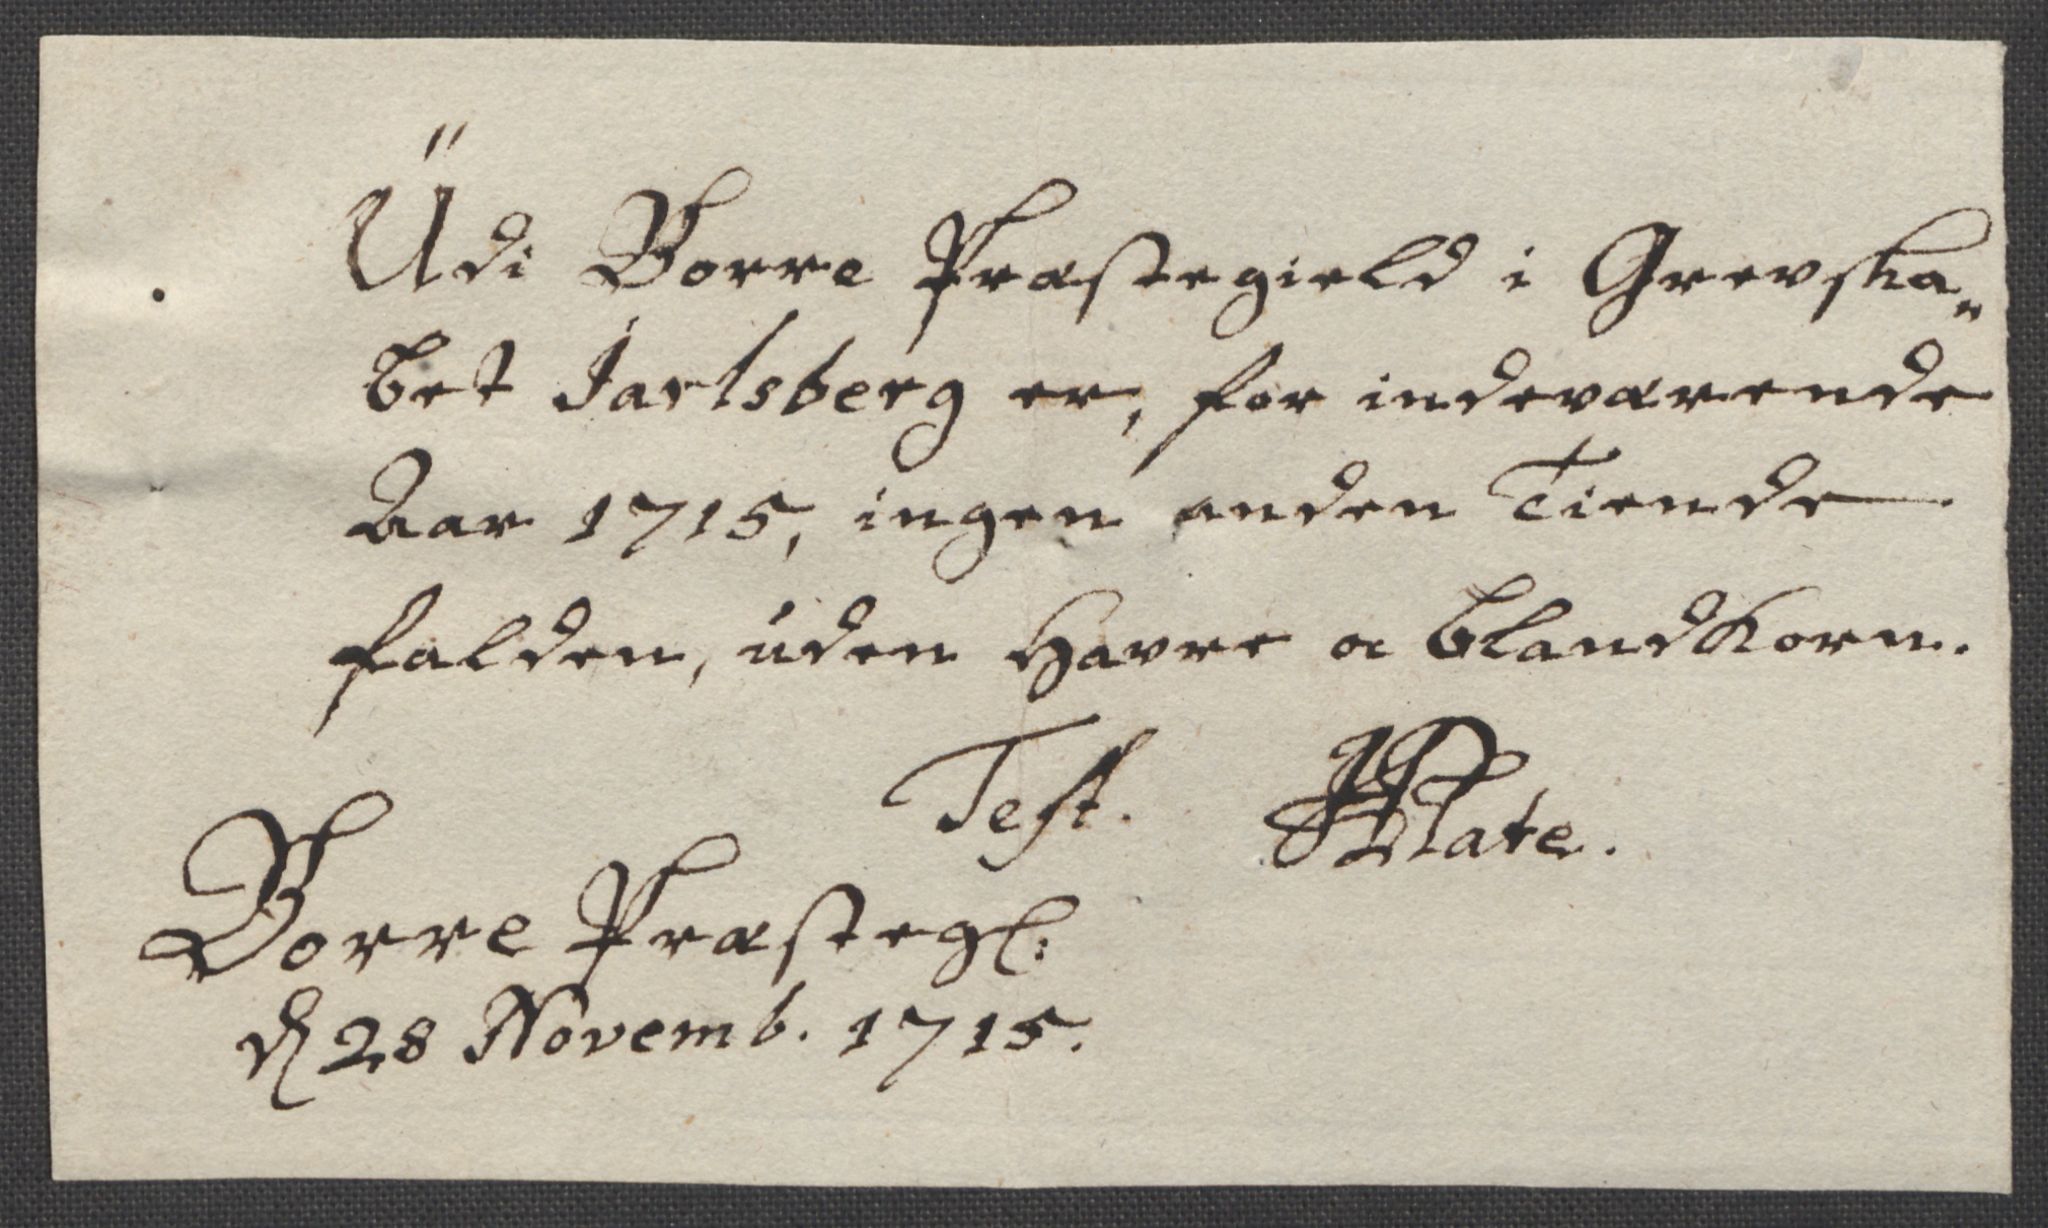 Üdi Borre Præstegield i Grevska„
bet Jarlsberg er, for indeværende
Aar 1715, ingen anden Tiende
falden, uden Havre oc blandkorn.
Test. HPlate.
Borre Præstegl:
d 28 Novemb. 1715.